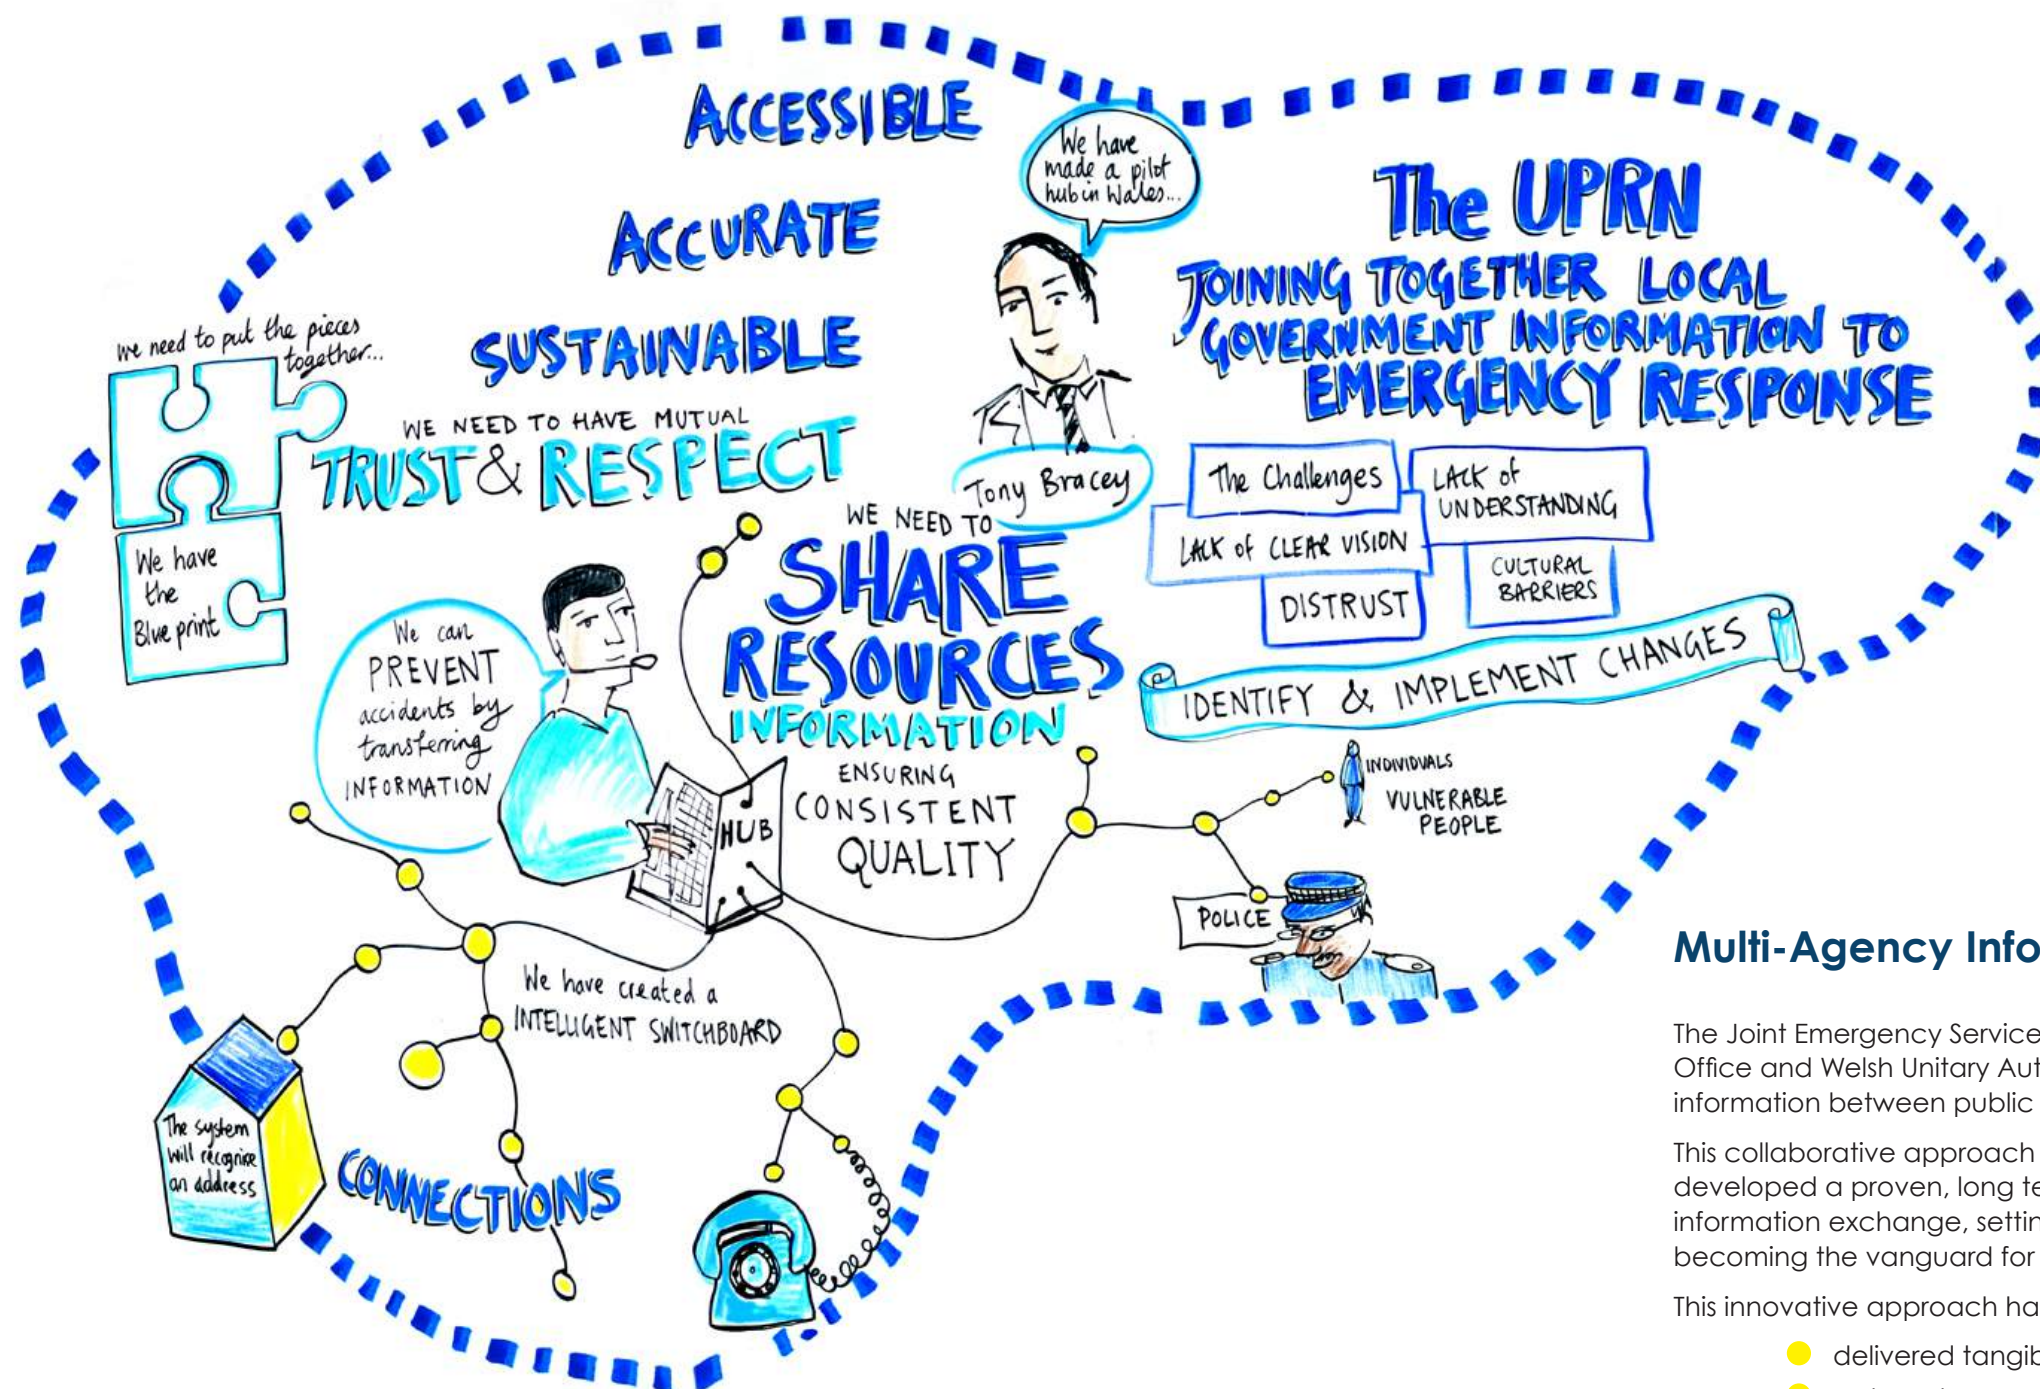 ACCESSIBLE
ACCURATE
SUSTAINABLE
We have
made a pilot
hub in Wales...
The UPRN
JOINING TOGETHER LOCAL
GOVERNMENT INFORMATION TO
EMERGENCY RESPONSE
we need to put the pieces
together...
We have
the
Blue print
WE NEED TO HAVE MUTUAL
TRUST & RESPECT
Tony Bracey
The Challenges
LACK of
UNDERSTANDING
LACK of CLEAR VISION
CULTURAL
BARRIERS
DISTRUST
IDENTIFY & IMPLEMENT CHANGES
WE NEED TO
SHARE
RESOURCES
INFORMATION
ENSURING
CONSISTENT
QUALITY
We can
PREVENT
accidents by
transferring
INFORMATION
HUB
INDIVIDUALS
VULNERABLE
PEOPLE
POLICE
We have created a
INTELLIGENT SWITCHBOARD
The system
will recognise
an address
CONNECTIONS
Multi-Agency Info
The Joint Emergency Service
Office and Welsh Unitary Aut
information between public
This collaborative approach
developed a proven, long te
information exchange, settin
becoming the vanguard for
This innovative approach ha
delivered tangib